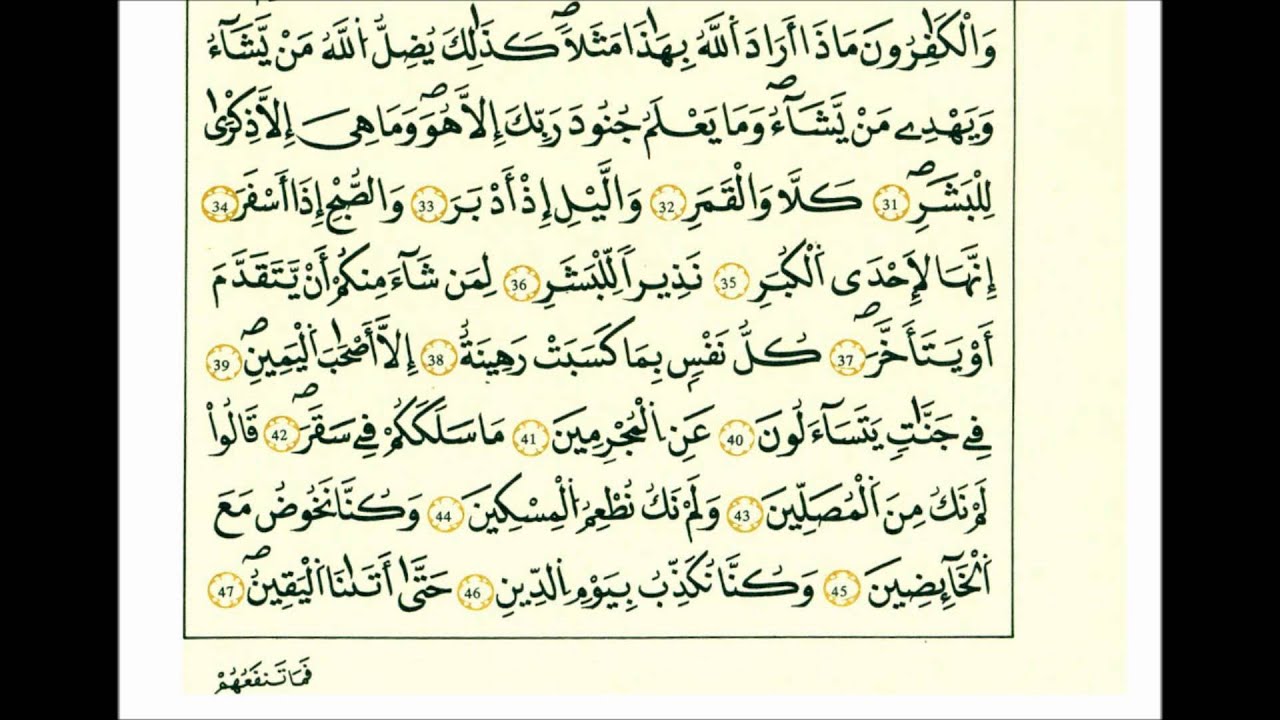 وَالْكَٰفِرُونَ مَاذَا أَرَادَ اَللَّهُ بِهَٰذَا مَثَلاً كَذَٰلِكَ يُضِلُّ اُللَّهُ مَنْ يَّشَآءُ
وَيَهْدِے مَنْ يَّشَآءُ وَمَا يَعْلَمُ جُنُودَ رَبِّكَ إِلاَّ هُوَ وَمَا هِىَ إِلاَّ ذِكْرَىٰ
لِلْبَشَرِ 31 كَلَّا وَالْقَمَرِ 32 وَالَّيْلِ إِذْ أَدْبَرَ 33 وَالصُّبْحِ إِذَا أَسْفَرَ 34
إِنَّهَا لَإِحْدَى اَلْكُبَرِ 35 نَذِيراً لِّلْبَشَرِ 36 لِمَن شَآءَ مِنكُمْ أَنْ يَّتَقَدَّمَ
أَوْ يَتَأَخَّرَ 37 كُلُّ نَفْسٍ بِمَا كَسَبَتْ رَهِينَةٌ 38 إِلاَّ أَصْحَٰبَ اَلْيَمِينِ 39
فِے جَنَّٰتٍ يَتَسَآءَلُونَ 40 عَنِ اِلْمُجْرِمِينَ 41 مَا سَلَكَكُمْ فِے سَقَرَ 42 قَالُواْ
لَمْ نَكُ مِنَ اَلْمُصَلِّينَ 43 وَلَمْ نَكُ نُطْعِمُ اُلْمِسْكِينَ 44 وَكُنَّا نَخُوضُ مَعَ
اَلْخَآئِضِينَ 45 وَكُنَّا نُكَذِّبُ بِيَوْمِ اِلدِّينِ 46 حَتَّىٰ أَتَىٰنَا اَلْيَقِينُ 47
فَمَا تَنفَعُهُمْ